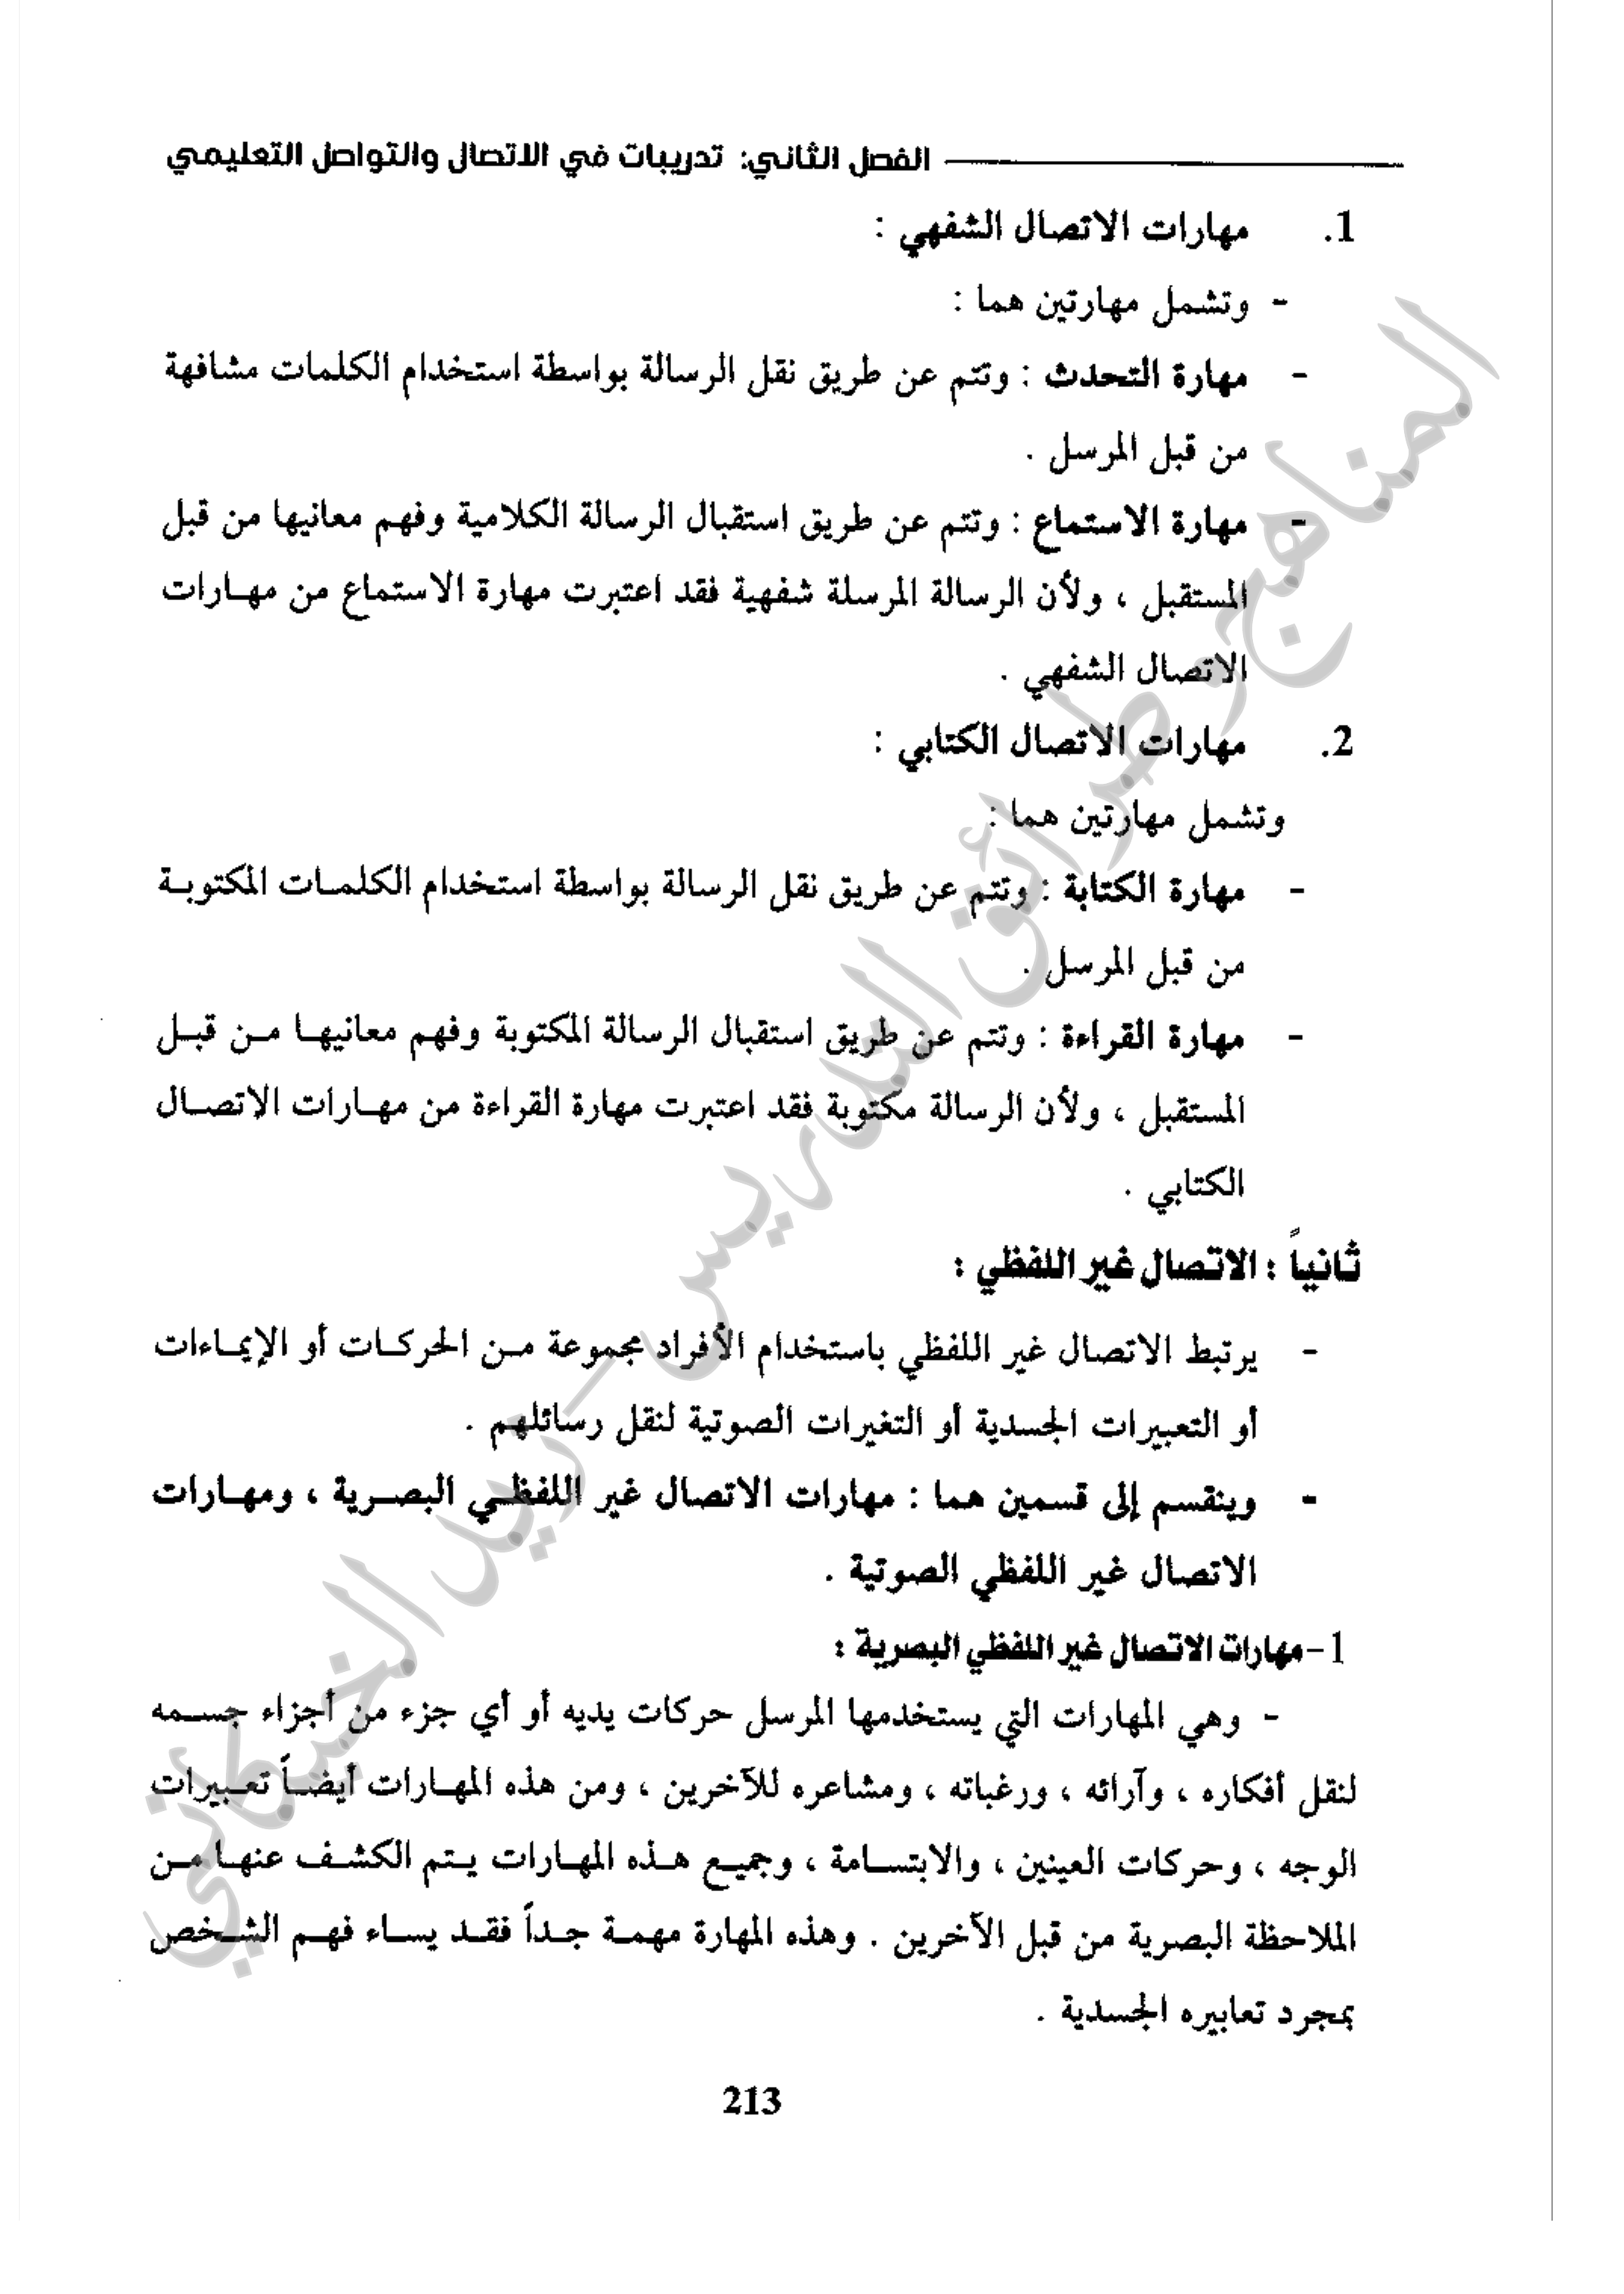 الفصل الثاني: تدريبات في الاتصال والتواصل التعليمي
1. مهارات الاتصال الشفهي :
- وتشمل مهارتين هما :
- مهارة التحدث : وتتم عن طريق نقل الرسالة بواسطة استخدام الكلمات مشافهة
من قبل المرسل .
- مهارة الاستماع : وتتم عن طريق استقبال الرسالة الكلامية وفهم معانيها من قبل
المستقبل ، ولأن الرسالة المرسلة شفهية فقد اعتبرت مهارة الاستماع من مهارات
الاتصال الشفهي .
2. مهارات الاتصال الكتابي :
وتشمل مهارتين هما :
- مهارة الكتابة : وتتم عن طريق نقل الرسالة بواسطة استخدام الكلمات المكتوبة
من قبل المرسل .
- مهارة القراءة : وتتم عن طريق استقبال الرسالة المكتوبة وفهم معانيها من قبل
المستقبل ، ولأن الرسالة مكتوبة فقد اعتبرت مهارة القراءة من مهارات الاتصال
الكتابي .
ثانياً : الاتصال غير اللفظي :
- يرتبط الاتصال غير اللفظي باستخدام الأفراد مجموعة من الحركات أو الإيماءات
أو التعبيرات الجسدية أو التغيرات الصوتية لنقل رسائلهم .
- وينقسم إلى قسمين هما : مهارات الاتصال غير اللفظي البصرية ، ومهارات
الاتصال غير اللفظي الصوتية .
1- مهارات الاتصال غير اللفظي البصرية :
- وهي المهارات التي يستخدمها المرسل حركات يديه أو أي جزء من أجزاء جسمه
لنقل أفكاره ، وآرائه ، ورغباته ، ومشاعره للآخرين ، ومن هذه المهارات أيضاً تعبيرات
الوجه ، وحركات العينين ، والابتسامة ، وجميع هذه المهارات يتم الكشف عنها من
الملاحظة البصرية من قبل الآخرين . وهذه المهارة مهمة جداً فقد يساء فهم الشخص
بمجرد تعابيره الجسدية .
213
المناهج وطرائق التدريس - زيد الخيكاني